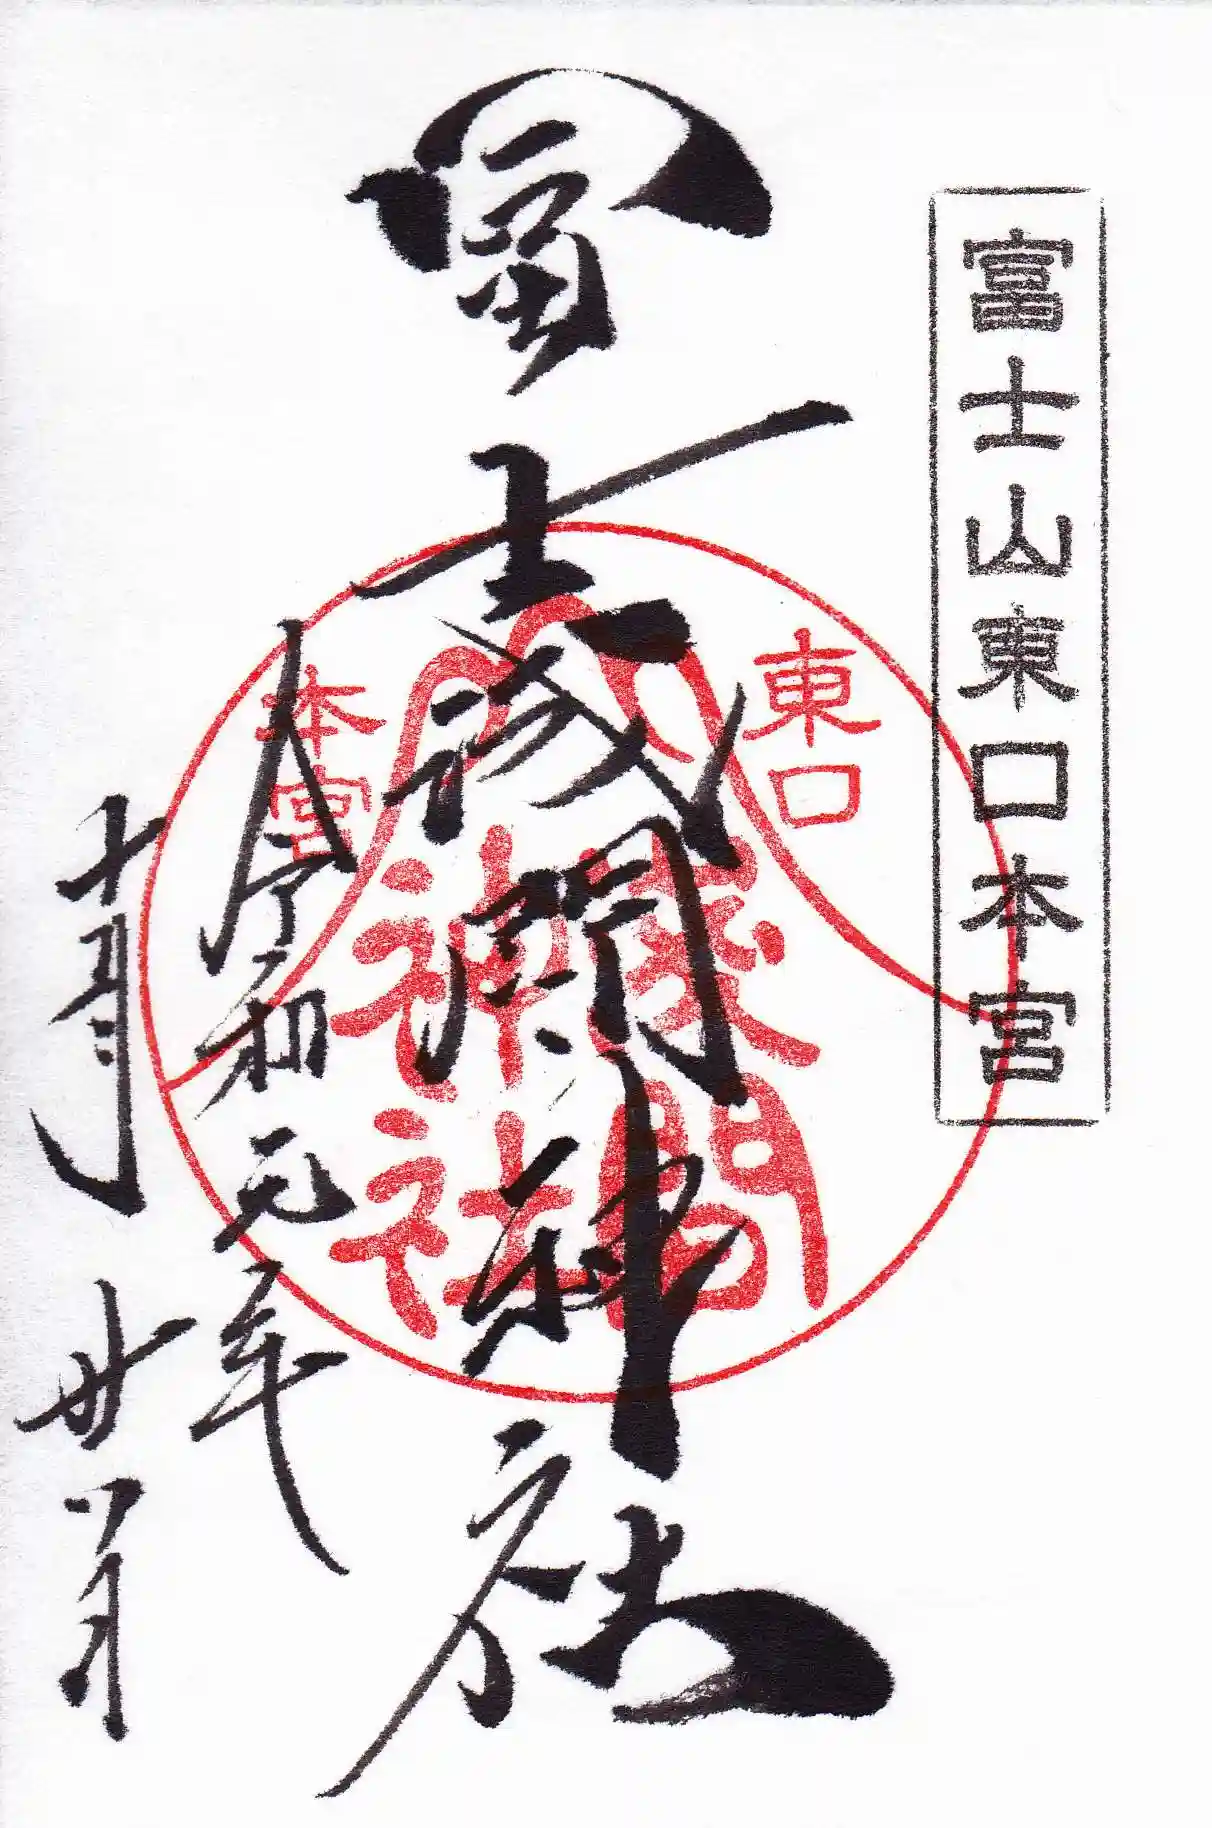 富士山東口本宮
冨士浅間神社
東口
本宮
浅間
神社
令和元年
十月廿八日